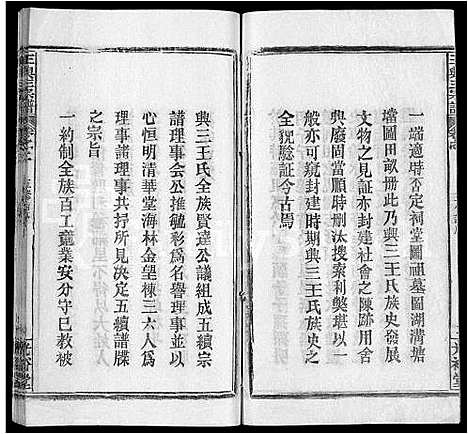 一端適時否定祠堂圖祖墓圖湖溝塘
壋圖田畝册此乃興三王氏族史發展
文物之見証亦封建社會之陳跡用舍
與廢固當順時刪汰搜索利獘堪以一
般亦可窺封建時期興三王氏族史之
全貎驗証今古焉
興三王氏全族賢達公議組成五續宗
譜理事會公推毓彩爲名譽理事並以
心恒明清華堂海林金望棟三六人爲
理事諸理事共抒所見決定五續譜牒
之宗旨
一約制全族百工藝業安分守已教被